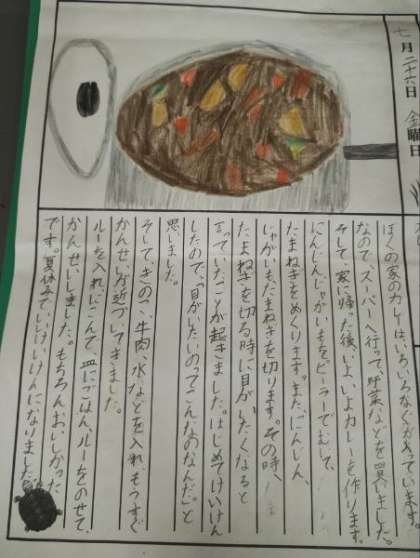 七月二十六日 金曜日
ぼくの家のカレーは、いろいろなくが入っています。
なので、スーパーへ行って、野菜などを買いました。
そして、家に帰った後、いよいよカレーを作ります。
にんじん、じゃがいもをピーラーでむして、
たまねぎをめくります。また、にんじん、
じゃがいも、たまねぎを切ります。その時、
たまねぎを切る時に目がいたくなると
言っていたことが起きました。はじめてけいけん
したので、「目がいたいのってこんなのなんだ」と
思いました。
そして、きのこ、牛肉、水などを入れ、もうすぐ
かんせいが近づいてきました。
ルーを入れ、にこんで、皿にごはん、ルーをのせて、
かんせいしました。もちろんおいしかった
です。夏休みでいいけいけんになりました